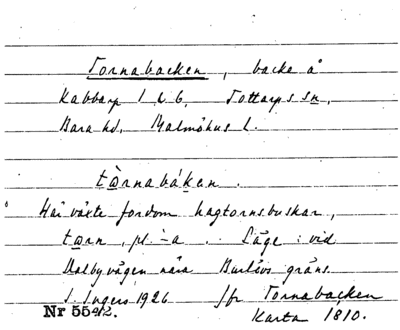 Tornabacken, backe å
Kabbarp 1 & 6, Tottarps sn,
Bara hd, Malmöhus l.
tàrnabákan.
Här växte fordom hagtornsbuskar,
tarn, pl. -a. Läge: vid
Dalbyvägen nära Burlövs gräns.
I. Ingers 1926 Jfr Tornabacken
Nr 5542. Karta 1810.